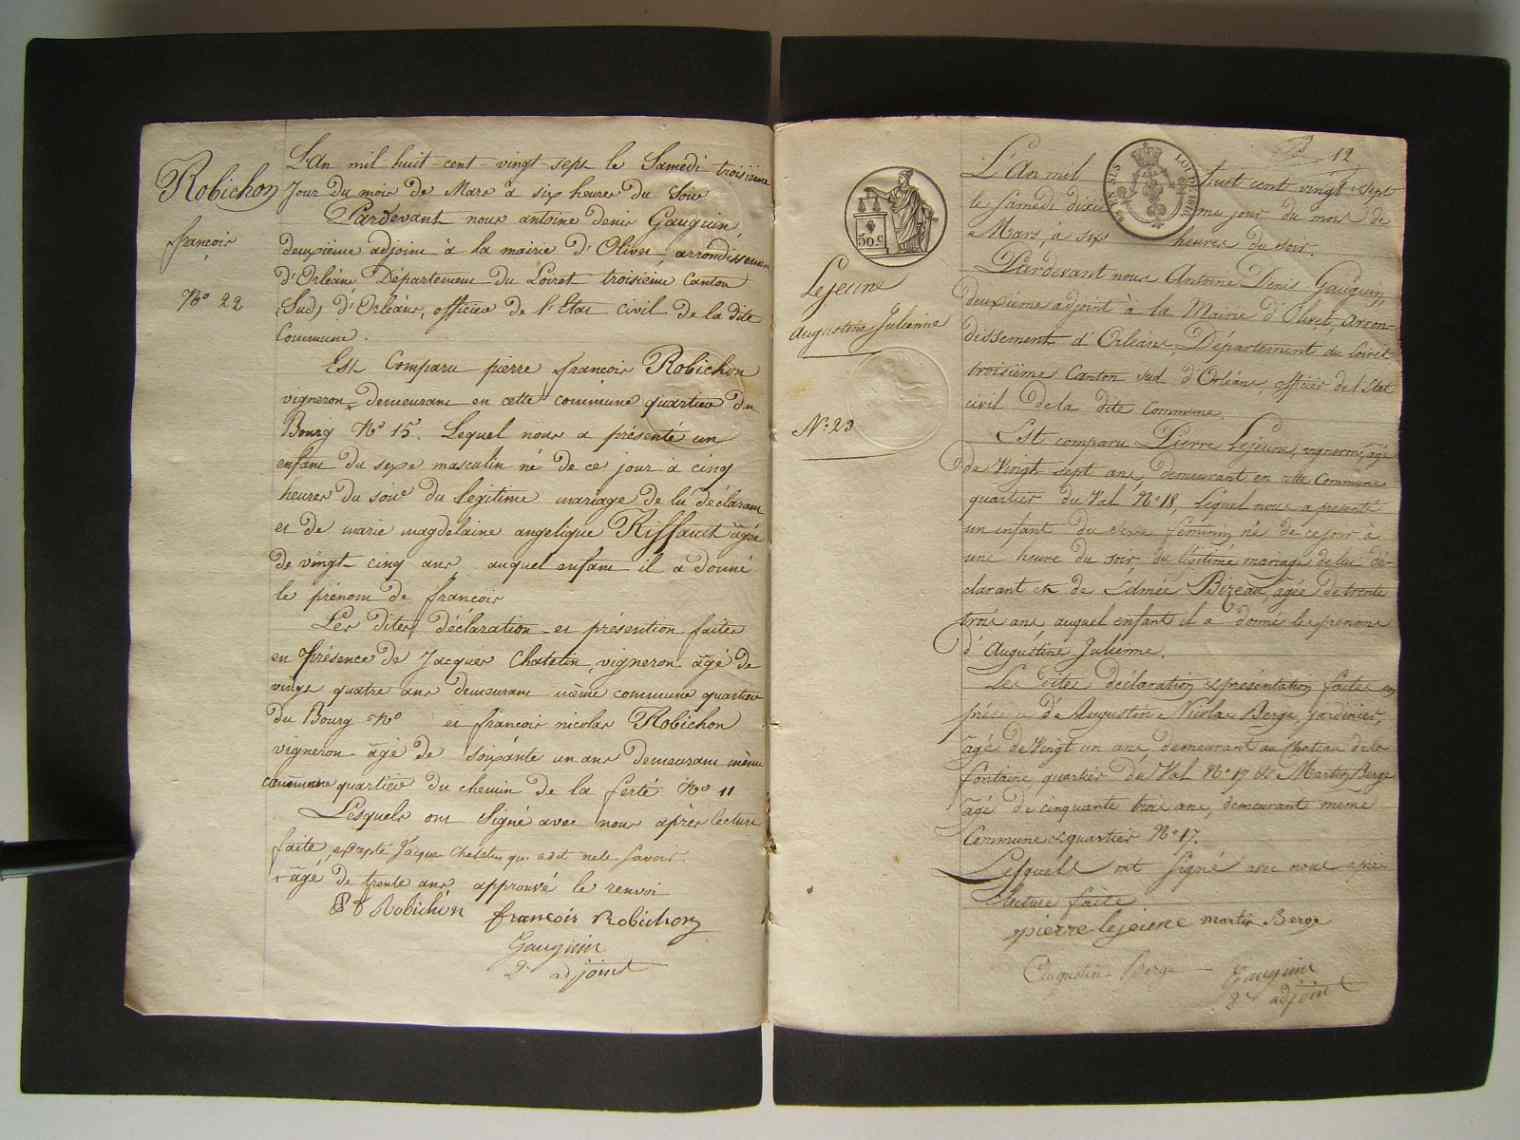 Robichon
françois
N° 22
L'An mil huit cent vingt sept le Samedi troisième
Jour du mois de Mars à six heures du Soir
Pardevant nous antoine denis Gauguin,
deuxieme adjoint à la mairie d'Olivet, arrondissement
d'Orléans Département du Loiret troisieme Canton
(Sud) d'Orléans, officier de l'Etat civil de la dite
Commune.
Est Comparu pierre françois Robichon
vigneron, demeurant en cette commune quartier du
Bourg N° 15. Lequel nous a présenté un
enfant du sexe masculin né de ce jour à cinq
heures du soir du legitime mariage de lu declarant
et de marie magdelaine angelique Riffault agée
de vingt cinq ans, auquel enfant il a donné
le prénom de françois
Les dites déclaration et présention faites
en présence de Jacques Chatelin, vigneron agé de
vingt quatre ans demeurant même commune quartier
du Bourg N° et françois nicolas Robichon
vigneron agé de soixante un ans demeurant même
commune quartier du chemin de la ferté N° 11
Lesquels ont Signé avec nous après lecture
faite, excepté Jacque Chatelin qui a dit ne le savoir.
agé de trente ans approuvé le renvoi
Robichon françois Robichon
Gauguin
2e adjoint
12
50 c
Lejeune
Augustine Julienne
N° 23
L'An mil huit cent vingt sept
le Samedi dixième jour du mois de
Mars, à six heures du soir.
Pardevant nous Antoine Denis Gauguin,
deuxième adjoint à la Mairie d'Olivet, Arron-
dissement d'Orléans, Département du Loiret
troisième Canton sud d'Orléans, officier de l'Etat
civil de la dite Commune.
Est comparu Pierre Lejeune, vigneron, agé
de Vingt sept ans, demeurant en cette Commune
quartier du Val N° 18, Lequel nous a presenté
un enfant du sexe féminin né de ce jour à
une heure du soir du légitime mariage de lui dé-
clarant et de Edmée Bizeau, agée de trente
trois ans auquel enfant il a donné les prénoms
d'Augustine Julienne.
Les dites déclaration et présentation faites en
présence d'Augustin Nicolas Berge, jardinier,
âgé de Vingt un ans, demeurant au Chateau de la
fontaine quartier du Val N° 17 et Martin Berge
âgé de cinquante trois ans, demeurant même
Commune et quartier N° 17.
Lesquels ont Signé avec nous après
lecture faite.
pierre lejeune martin Berge
Augustin Berge Gauguin
2e adjoint